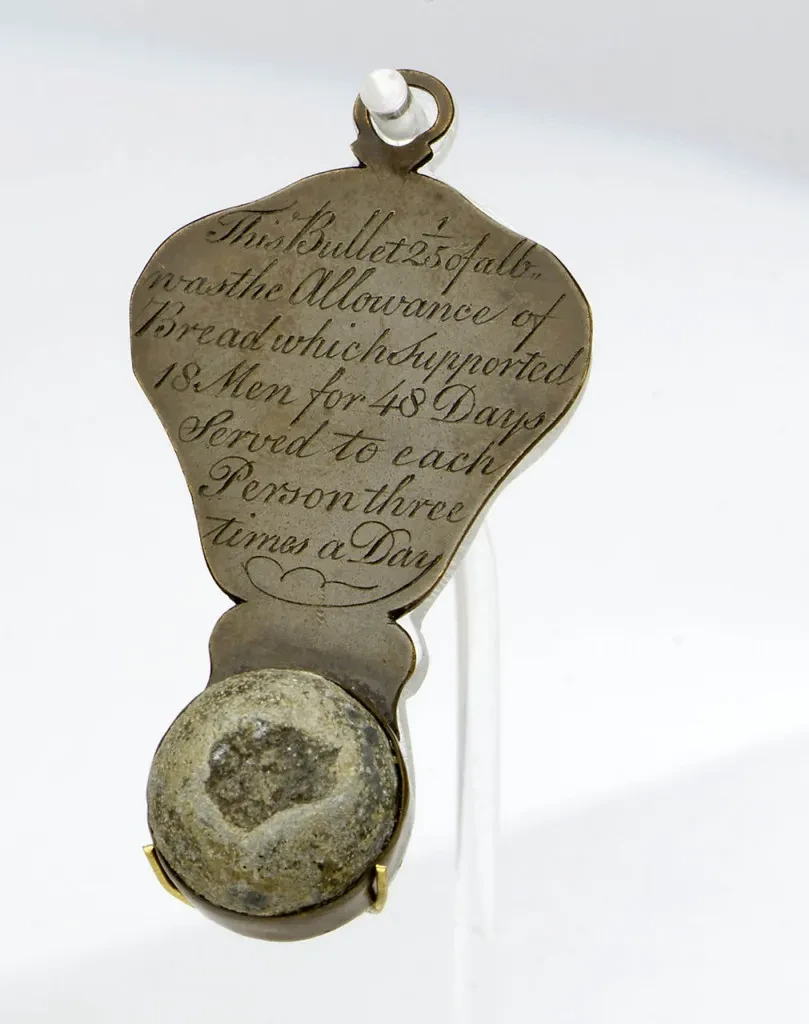 This Bullet 1/25 of a lb..
was the Allowance of
Bread which Supported
18 Men for 48 Days
Served to each
Person three
times a Day